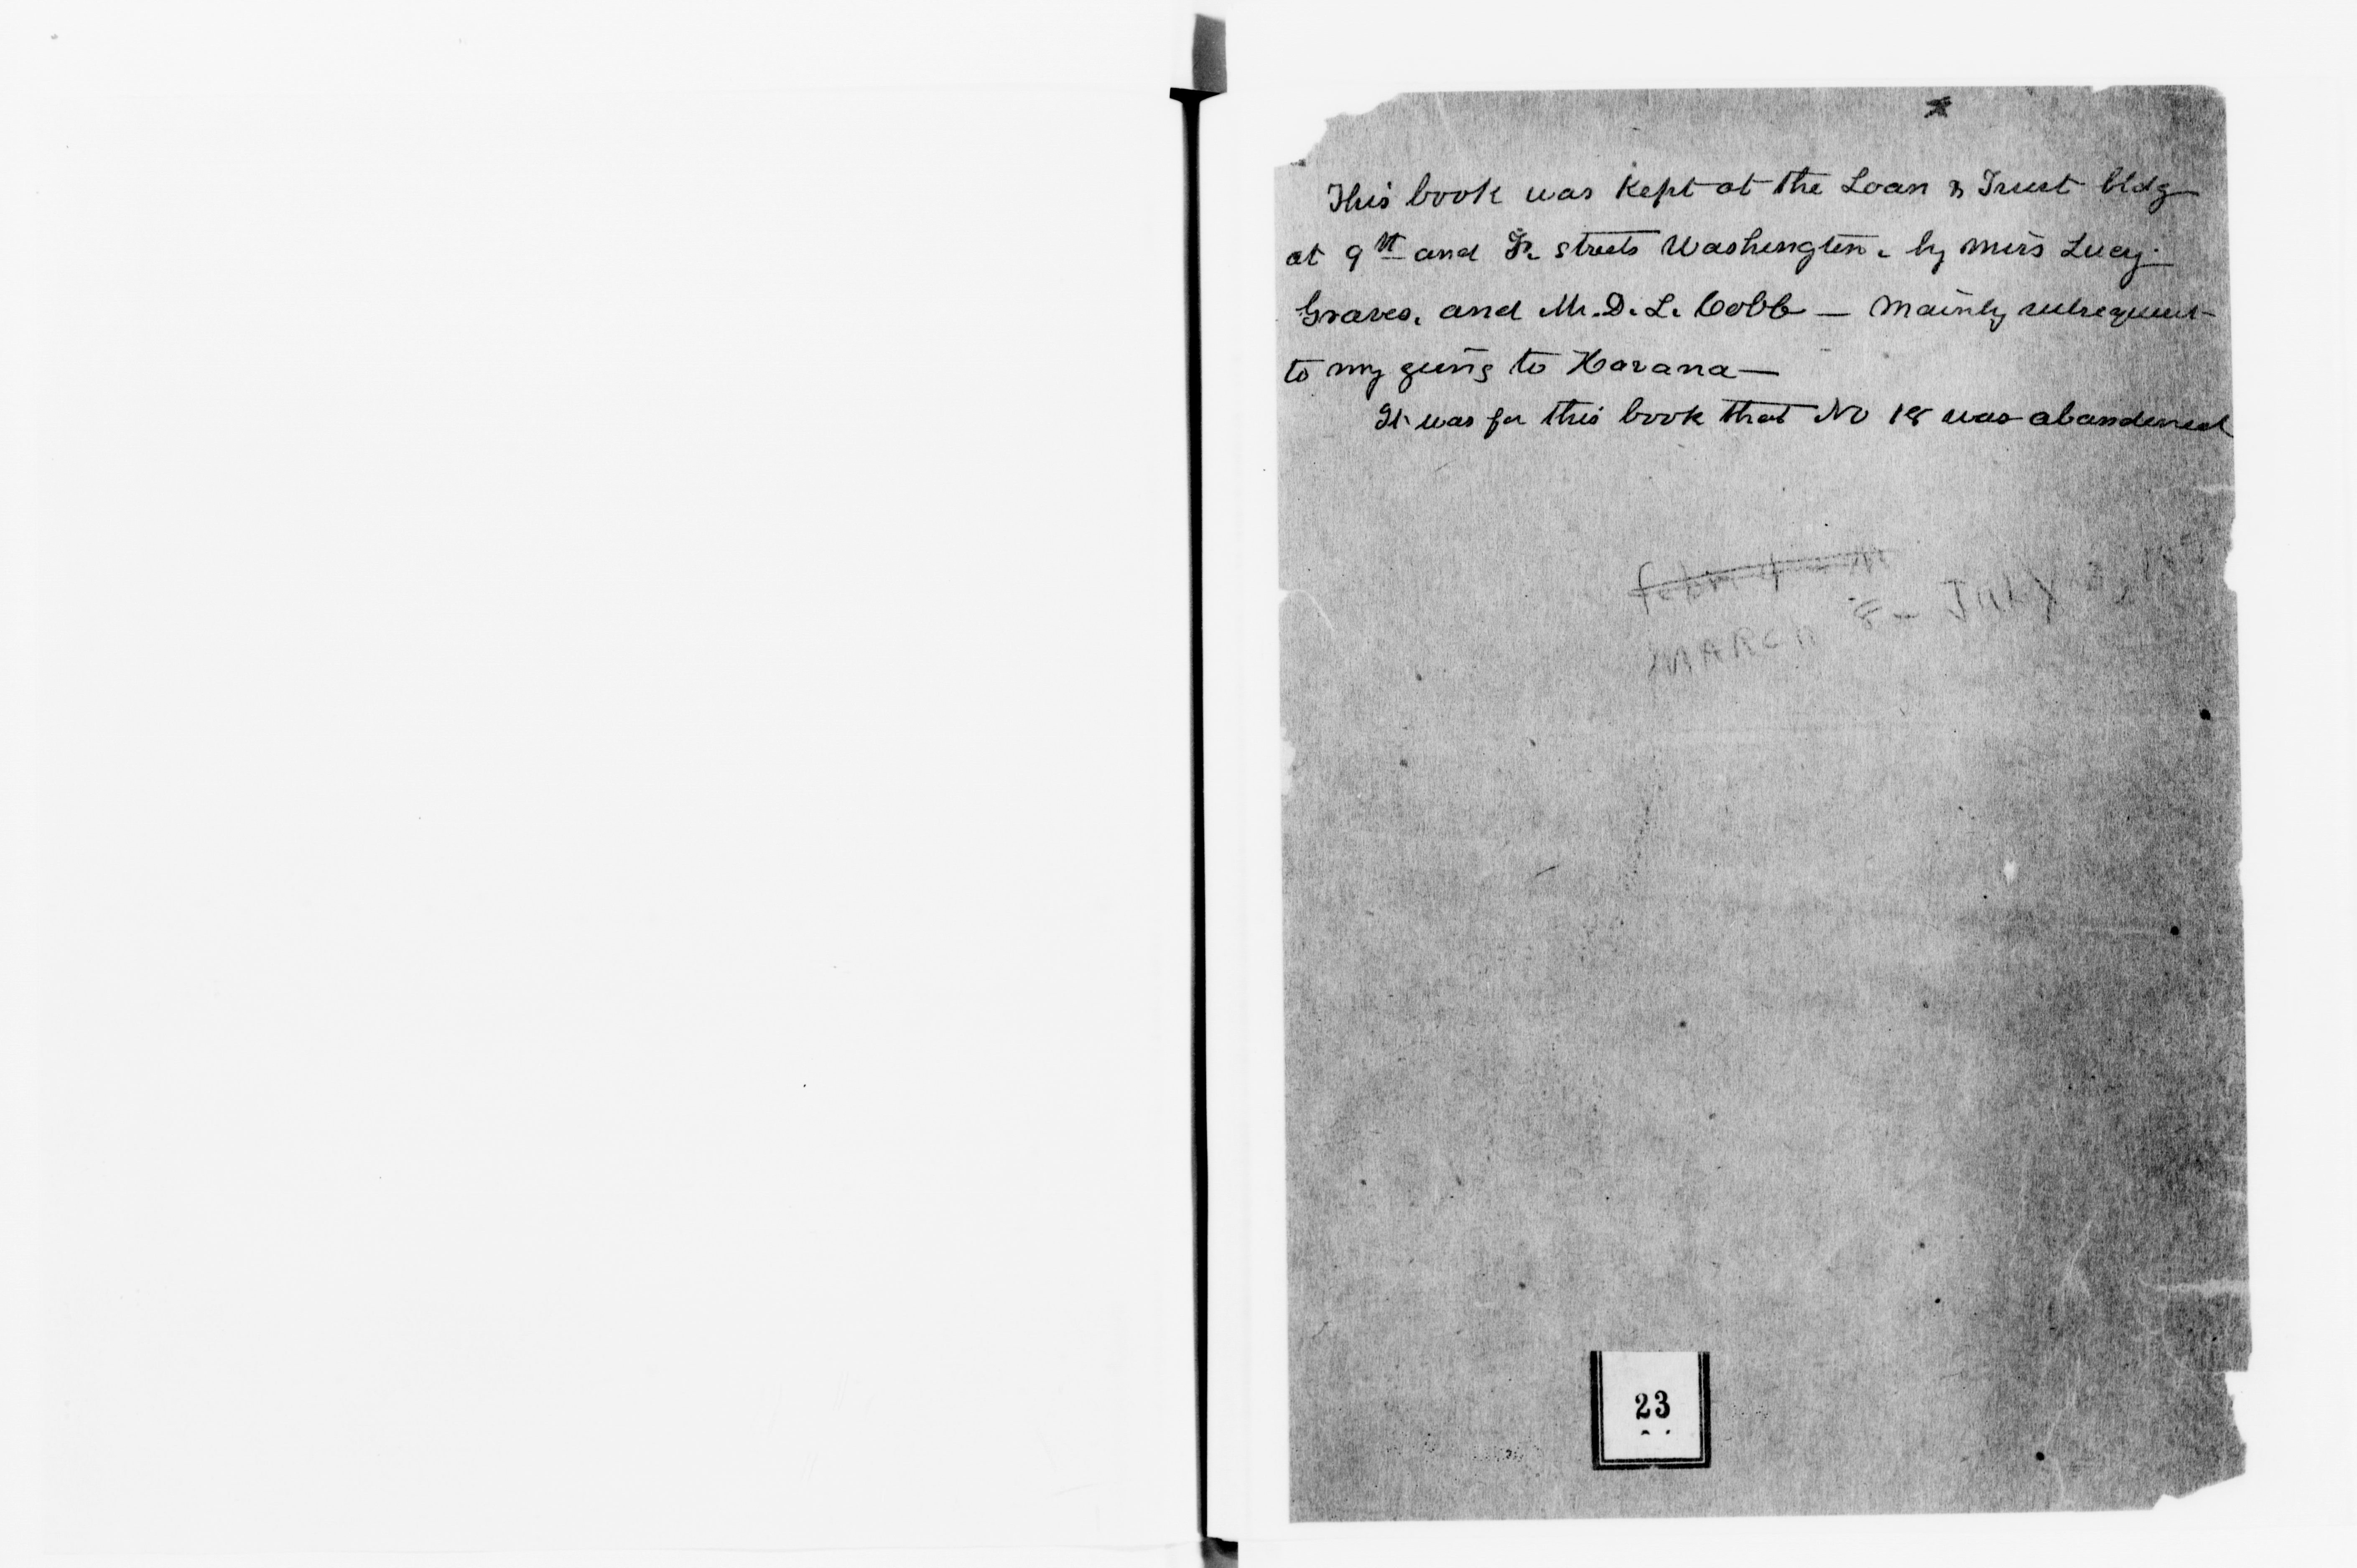 This book was kept at the Loan & Trust bldg
at 9th and F. streets Washington. by Miss Lucy
Graves. and Mr. D. L. Cobb — mainly subsequent
to my going to Havana —
It was for this book that No 18 was abandoned
MARCH 8 - JULY 3,
23